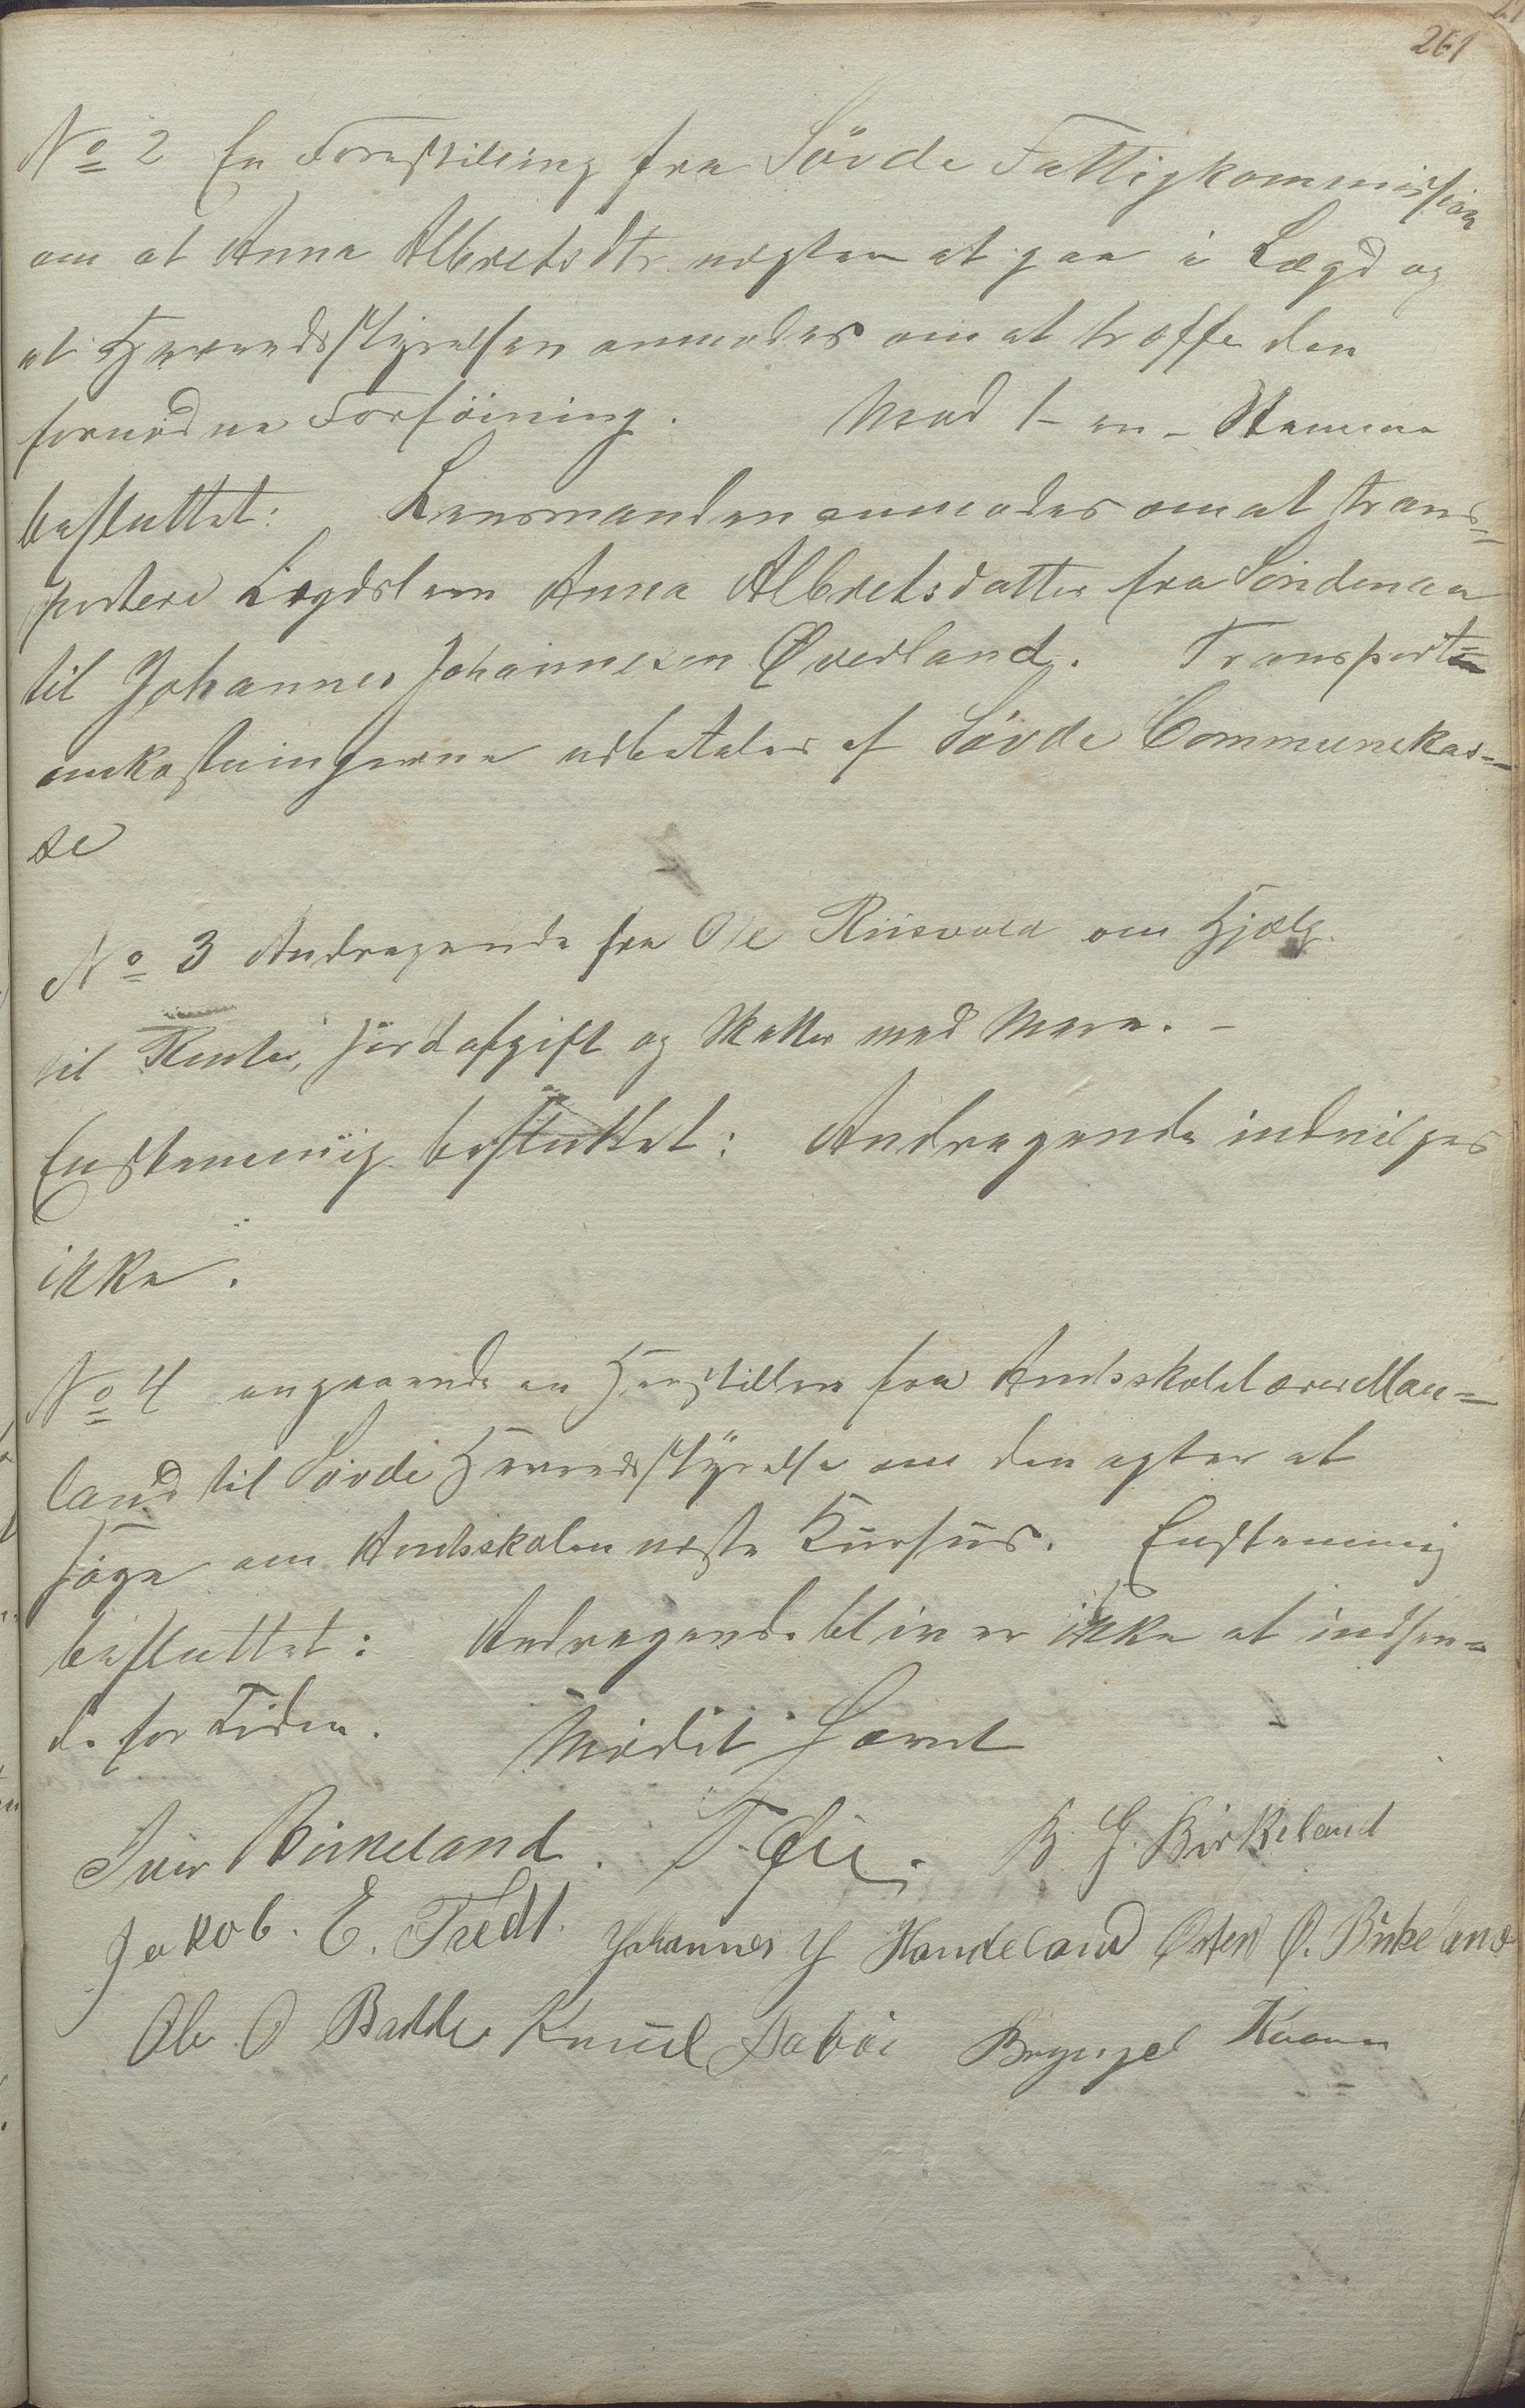 261
No 2 En Forestilling fra Søvde Fattigkommission
om at Anna Albretsdtr. negter at gaa i Lægd og
at Herredsstyrelsen anmodes om at træffe den
fornødne Forføining. Mod 1 - en - Stemme
besluttet: Lensmanden anmodes om at trans-
portere Lægdslem Anna Albretsdatter fra Søndenaa
til Johannes Johannesen Øverland. Transport-
omkostningerne udbetales af Søvde Communekas-
se
No 3 Andragende fra Ole Riisvold om Hjælp
til Renter, Jordafgift og Skatter med Mere. -
Enstemmig besluttet: Andragende indvilges
ikke.
No 4 angaaende en Henstillen fra Amtsskolelærer Mæ-
land til Søvde Herredsstyrelse om den agter at
søge om Amtsskolen neste Kursus. Enstemmig
besluttet: Andragende bliver ikke at indsen-
de for Tiden. Mødet Hævet
Iver Birkeland. T. Øie. B. G. Birkeland
Jakob. E. Tredt. Johannes J Handeland Østen Ø. Birkeland
Ole O Badde Knud Aabøe Bryngel